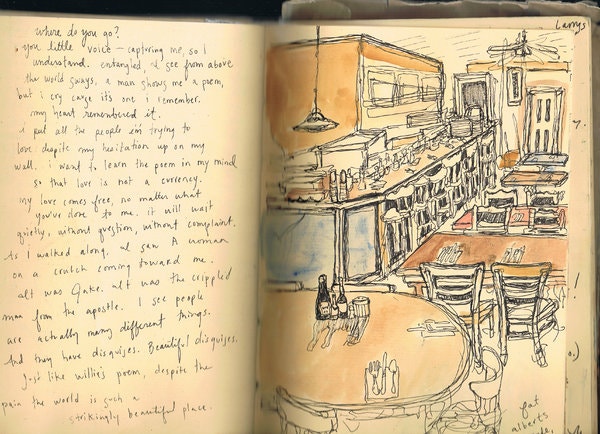 where do you go?
you little voice - capturing me, so I
understand. entangled, I see from above
the world sways, a man shows me a poem,
but i cry cause it's one i remember.
my heart remembered it.
i put all the people i'm trying to
love despite my hesitation up on my
wall. i want to learn the poem in my mind
so that love is not a currency.
my love comes free, no matter what
you've done to me. it will wait
quietly, without question, without complaint.
As I walked along, I saw A woman
on a crutch coming toward me.
it was Jake. it was the crippled
man from the apostle. I see people
are actually many different things.
And they have disguises. Beautiful disguises.
Just like willie's poem, despite the
pain the world is such a
strikingly beautiful place.
Larrys
fat
alberts